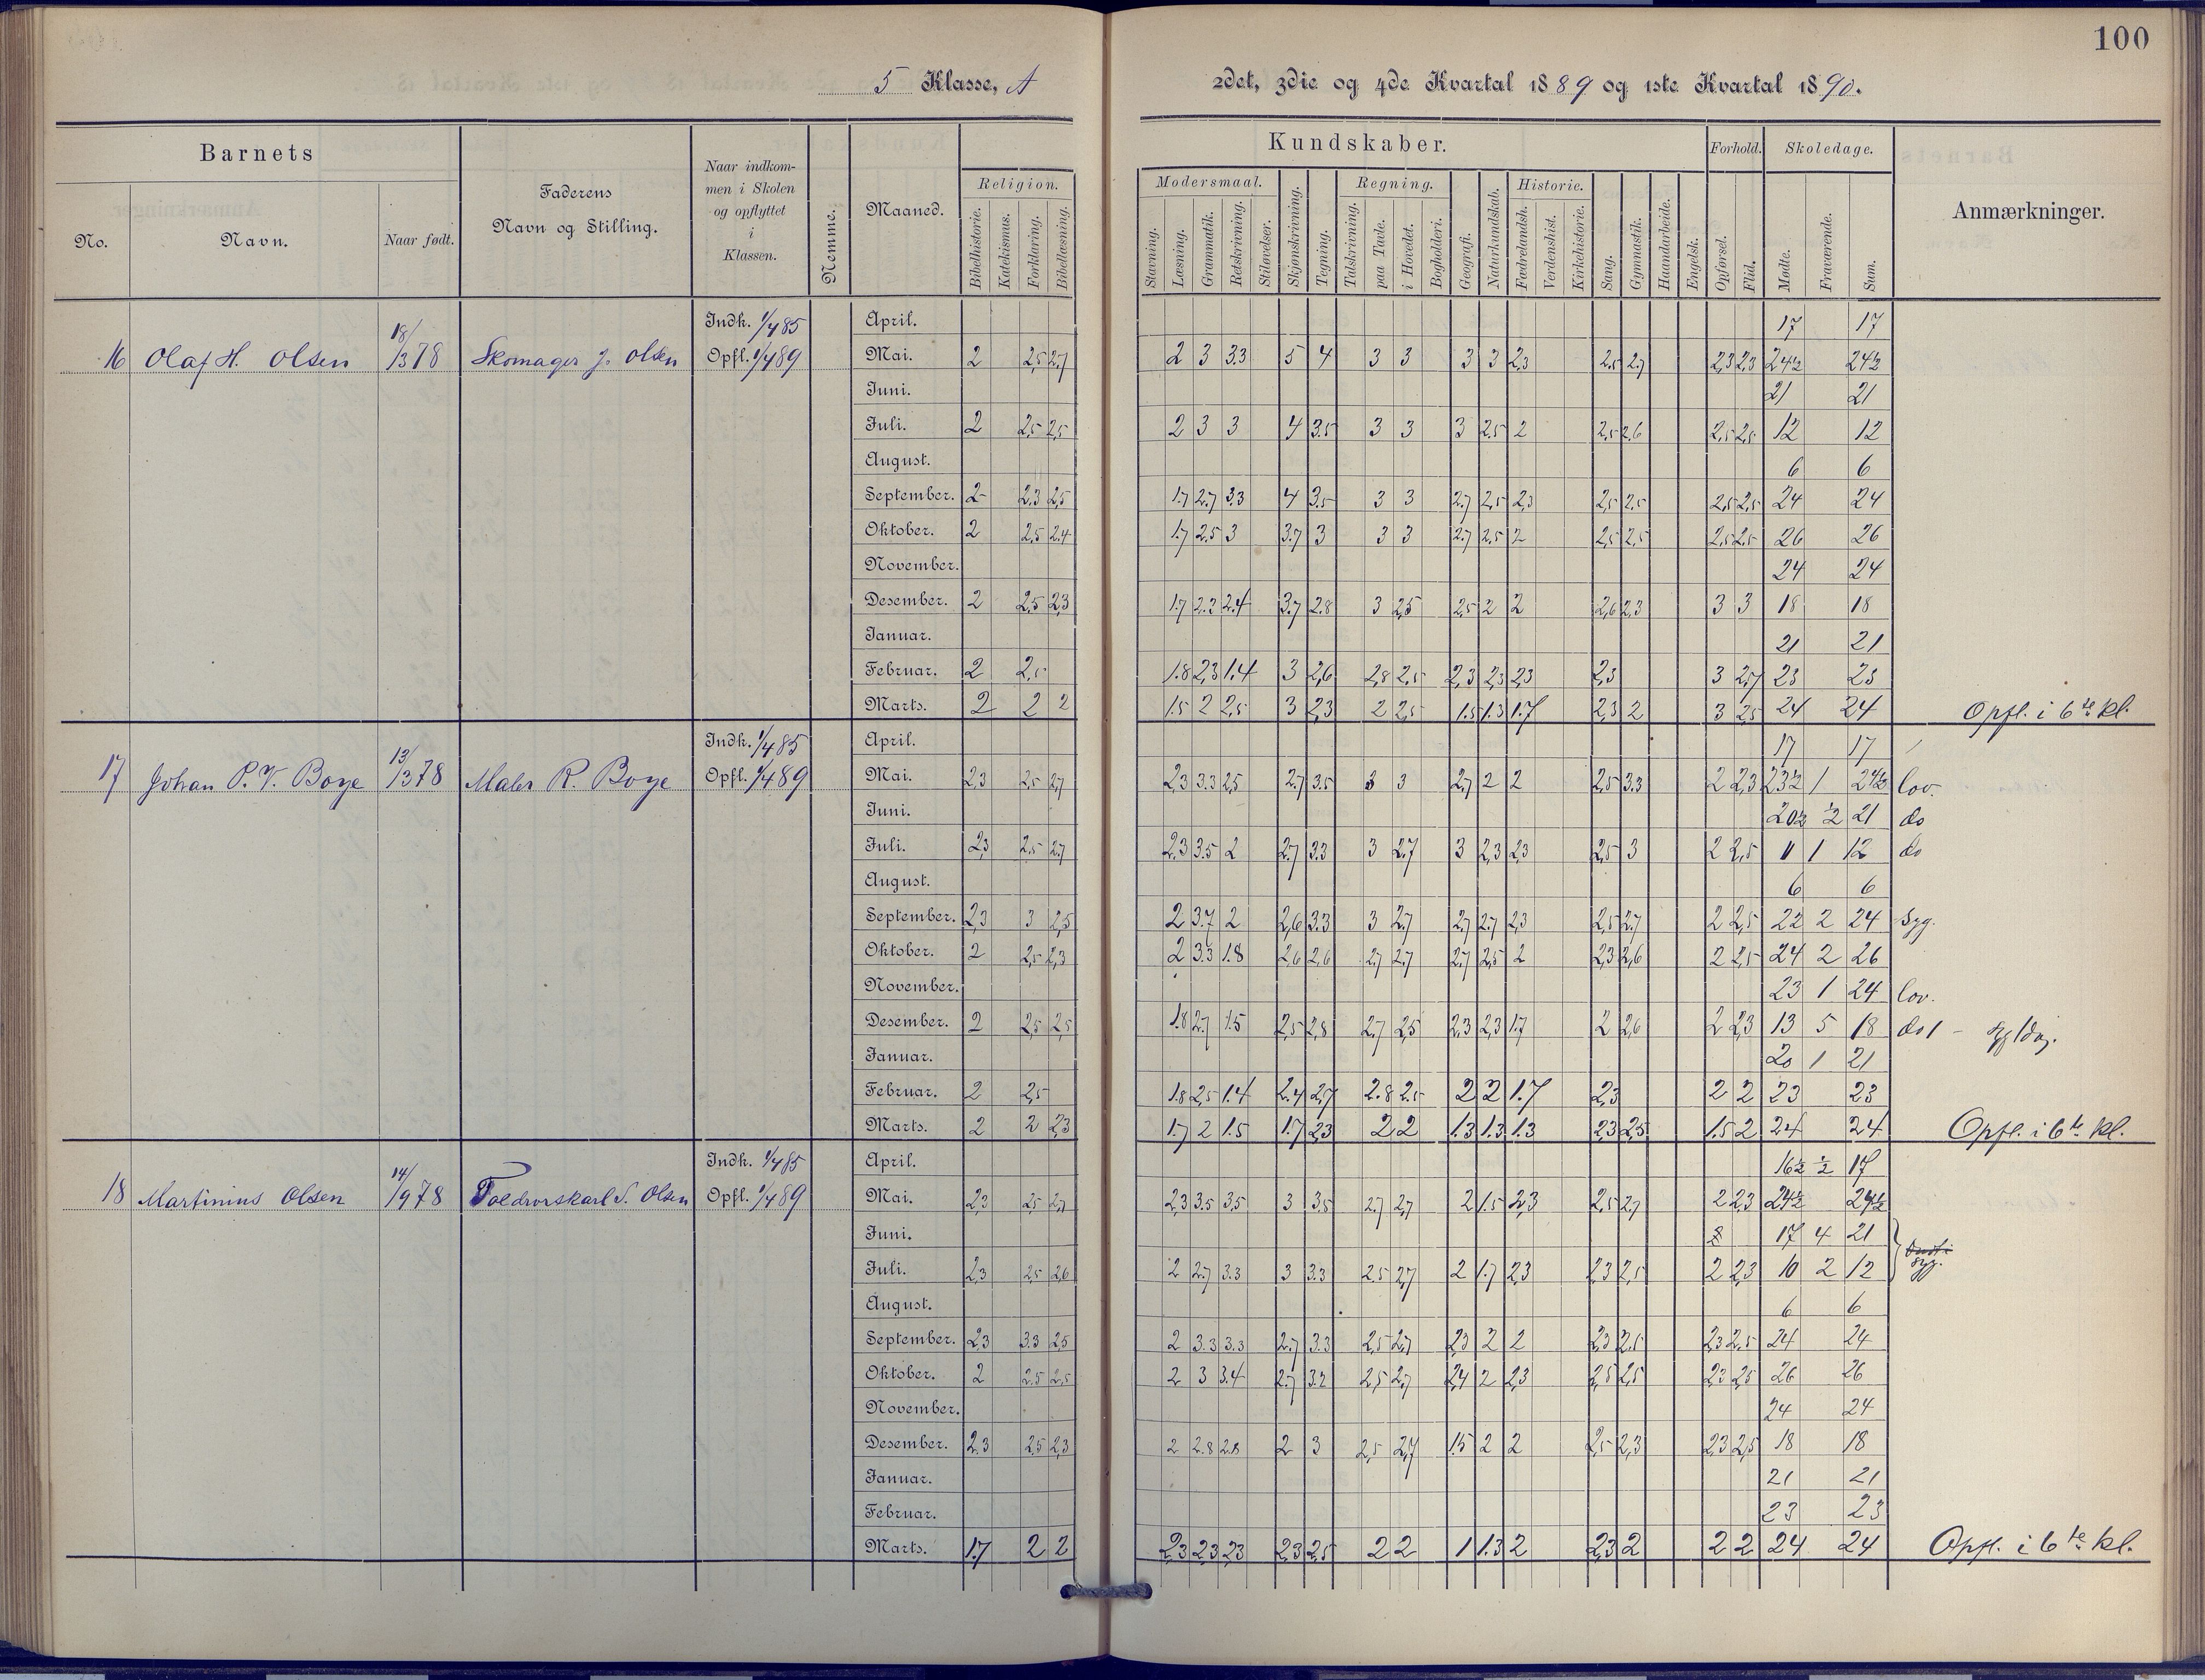 100
5 Klasse, A 2det, 3die og 4de Kvartal 1889 og 1ste Kvartal 1890.
Barnets
No. Navn. Naar født.
Faderens
Navn og Stilling.
Naar indkom-
men i Skolen
og opflyttet
i
Klassen.
Nemme.
Maaned.
Kundskaber.
Religion.
Bibelhistorie. Katekismus. Forklaring. Bibellæsning.
Modersmaal.
Stavning. Læsning. Grammatik. Retskrivning. Stiløvelser.
Skjønskrivning. Tegning.
Regning.
Talskrivning. paa Tavle. i Hovedet. Bogholderi.
Geografi. Naturkundskab.
Historie.
Fædrelandsh. Verdenshist. Kirkehistorie.
Sang. Gymnastik. Haandarbeide. Engelsk.
Forhold.
Opførsel. Flid.
Skoledage.
Mødte. Fraværende. Sum.
Anmærkninger.
16 Olaf H. Olsen 18/3 78 Skomager J. Olsen
Indk. 1/4 85
Opfl. 1/4 89
April. 17 17
Mai. 2 2,5 2,7 2 3 3.3 5 4 3 3 3 3 2,3 2,5 2,7 2,3 2,3 24½ 24½
Juni. 21 21
Juli. 2 2,5 2,5 2 3 3 4 3.5 3 3 3 2,5 2 2,5 2,6 2,5 2,5 12 12
August. 6 6
September. 2 2,3 2,5 1.7 2.7 3.3 4 3.5 3 3 2,7 2,5 2,3 2,5 2,5 2,5 2,5 24 24
Oktober. 2 2,5 2.4 1.7 2.5 3 3.7 3 3 3 2,7 2,5 2 2,5 2,5 2,5 2,5 26 26
November. 24 24
Desember. 2 2,5 2,3 1.7 2.2 2.4 3.7 2.8 3 2,5 2,5 2 2 2,6 2,3 3 3 18 18
Januar. 21 21
Februar. 2 2,5 1.8 2,3 1.4 3 2,6 2,8 2,5 2,3 2,3 2,3 2,3 3 2,7 23 23
Marts. 2 2 2 1.5 2 2,5 3 2,3 2 2,5 1.5 1.3 1.7 2,3 2 3 2,5 24 24 Opfl. i 6te kl.
17 Johan P. V. Boye 13/3 78 Maler R. Boye
Indk. 1/4 85
Opfl. 1/4 89
April. 17 17
Mai. 2,3 2,5 2,7 2,3 3.3 2,5 2.7 3.5 3 3 2,7 2 2 2,5 3.3 2 2,3 23½ 1 24½ lov.
Juni. 20½ ½ 21 do
Juli. 2,3 2,5 2,7 2,3 3.5 2 2,7 3.3 3 2,7 3 2,3 2,3 2,5 3 2 2,5 11 1 12 do
August. 6 6
September. 2,3 3 2,5 2 3.7 2 2,6 3.3 3 2,7 2,7 2,7 2,3 2,5 2,7 2 2,5 22 2 24 Syg.
Oktober. 2 2,5 2,3 2 3.3 1.8 2,6 2,6 2,7 2,7 2,7 2,5 2 2,3 2,6 2 2,5 24 2 26
November. 23 1 24 lov.
Desember. 2 2,5 2,5 1.8 2.7 1.5 2,5 2,8 2,7 2,5 2,3 2,3 1.7 2 2,6 2 2,3 13 5 18 do 1 - syg 1 dag.
Januar. 20 1 21
Februar. 2 2,5 1.8 2,5 1.4 2.4 2,7 2.8 2.5 2 2 1.7 2,3 2 2 23 23
Marts. 2 2 2,3 1.7 2 1.5 1.7 2,3 2 2 1.3 1.3 1.3 2,3 2,5 1.5 2 24 24 Opfl. i 6te kl.
18 Martinius Olsen 14/9 78 Olsen
Indk. 1/4 85
Opfl. 1/4 89
April. 16½ ½ 17
Mai. 2,3 2,5 2,7 2,3 3.5 3,5 3 3,5 2,7 2,7 2 1.5 2,3 2,5 2,7 2 2,3 24½ 24½
Juni. 17 4 21
Juli. 2,3 2,5 2,6 2 2,7 3.3 3 3.3 2.5 2,7 2 1.7 2,3 2,3 2,5 2 2,3 10 2 12 syg.
August. 6 6
September. 2,3 3.3 2,5 2 3.3 3.3 2.7 3.3 2,5 2,7 2,3 2 2 2,3 2,5 2,3 2,5 24 24
Oktober. 2 2.5 2,5 2 3 3.4 2.7 3.2 2,5 2,7 2,4 2 2,3 2,5 2,5 2,3 2,5 26 26
November. 24 24
Desember. 2.3 2,5 2,3 2 2.8 2.8 2 3 2,5 2,7 1.5 2 2 2,5 2,3 2,3 2,5 18 18
Januar. 21 21
Februar. 23 23
Marts. 1.7 2 2 2,3 2,3 2,3 2,3 2,5 2 2 1 1.3 2 2,3 2 2 2 24 24 Opfl. i 6te kl.